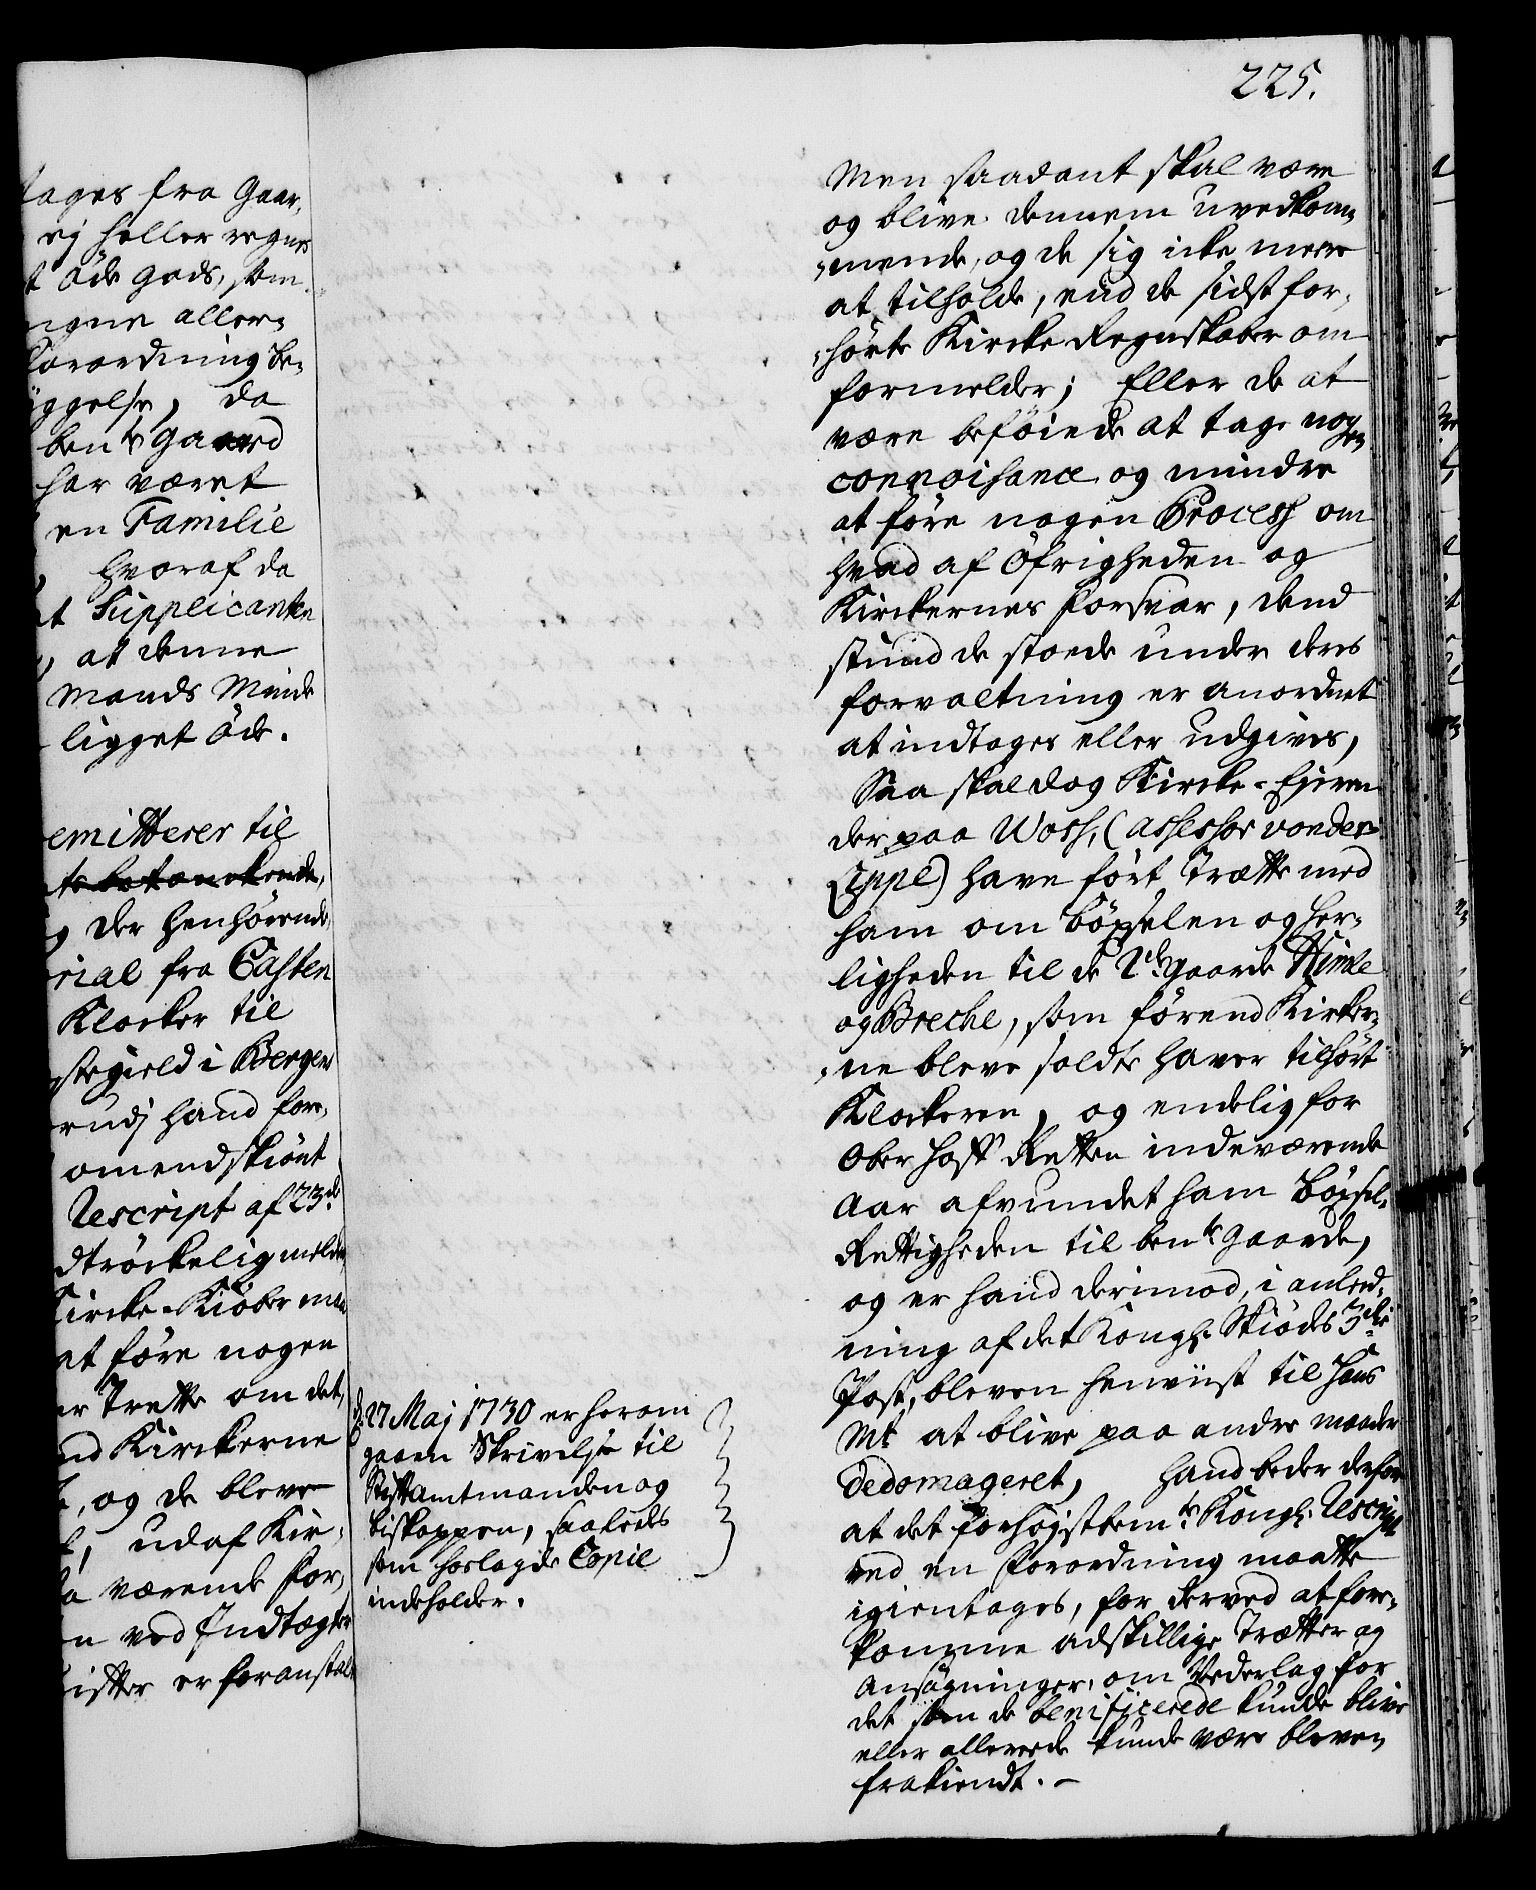 tages fra Gaar,
ej heller regnes
t öde gods, som
igne aller-
forordning be-
yggelse, da
bente gaard
har været
en Familie
hvoraf da
at Supplicanten
, at denne
Mands Minde
ligget öde.
emitterer til
der henhörende
rial fra Casten
Klocker til
stegield i Bergens
rudj hand fore,
omendskiönt
Rescript af 23de
dtröckelig melder
Kircke-Kiöber maa
at före nogen
er Trette om det,
nd Kirckerne
, og de bleve
, udaf Kir-
a værende for,
n ved Indtægter
ister er foranstalt
d: 27 Maj 1730 er herom
gaaen Skrivelse til
Stiftamtmanden og
biskoppen, saaledes
som hoslagde Copie
indeholder.
225.
Men saadant skal være
og blive dennem uvedkom-
-mende, og de sig icke meere
at tilholde, end de sidst for,
-hörte Kircke Regnskaber om
formelder; Eller de at
være beföiede at tage nogen
connoisance og mindre
at före nogen Process om
hvad af Öfrigheden og
Kirckernes Forsvar, dend
stund de stoede under deres
forvaltning er anordnet
at indtages eller udgives,
Saa skal dog Kircke-Ejeren
der paa Woss, (Assessor vonder
Lippe) have fört Trætte med
ham om böxselen og her-
ligheden til de 2de gaarde Himle
og Breche, som förend Kircker,
-ne bleve soldte haver tilhört
Klockeren, og endelig for
Ober Hoff Retten indeværende
Aar afvundet ham böxsel-
Rettigheden til bente gaarde,
og er hand derimod, i anled-
ning af det Kongl: Skiödes 3die
Post, bleven henviist til Hans
Mt at blive paa andre maader
dedomageret, hand beder derfor
at det forhöjstbemte Kongl: Rescript
ved en Forordning maatte
igientages, for derved at fore-
komme adskillige Trætter og
Ansögninger, om Vederlag for
det som de benificerede kunde blive
eller allerede kunde være bleven
frakiendt. -